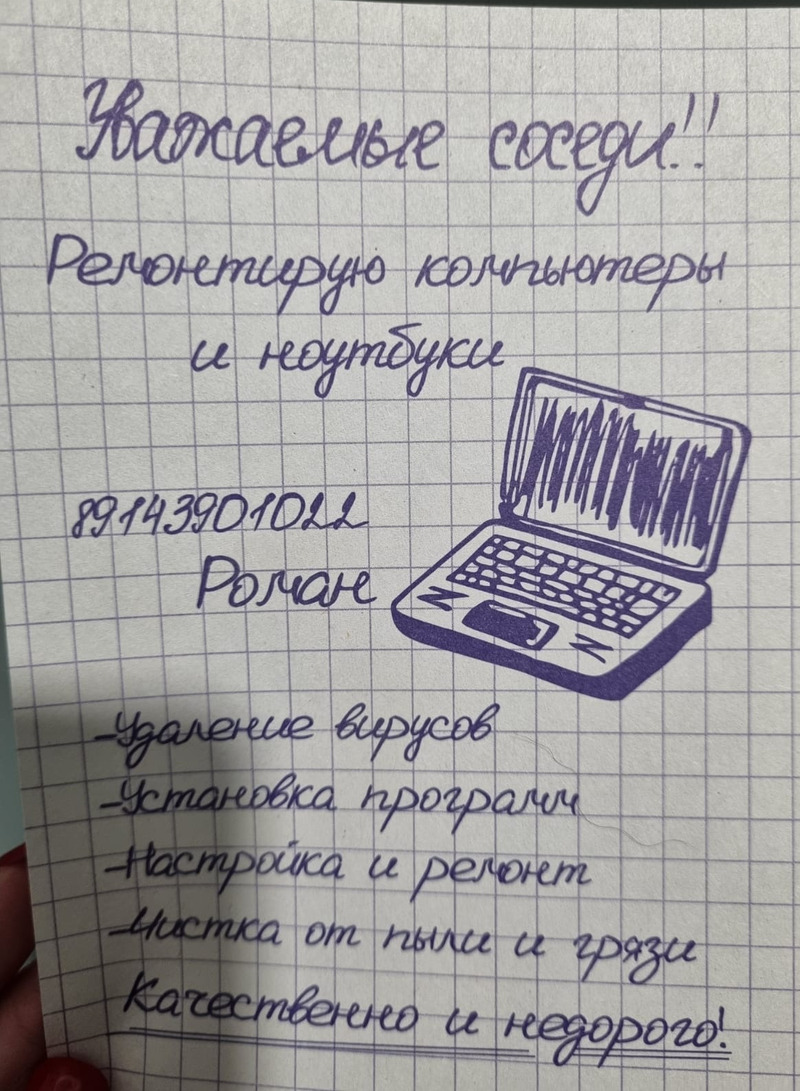 Уважаемые соседи!!
Ремонтирую компьютеры
и ноутбуки
89143901022
Роман
-Удаление вирусов
-Установка программ
-Настройка и ремонт
-Чистка от пыли и грязи
Качественно и недорого!